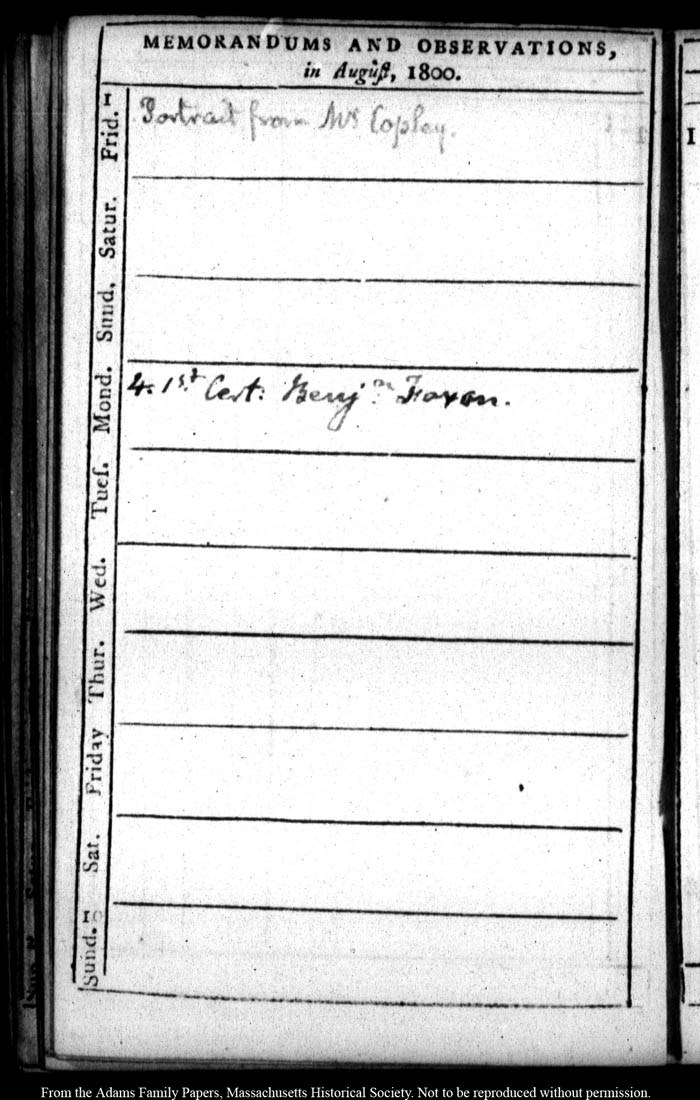 MEMORANDUMS AND OBSERVATIONS,
in Auguſt, 1800.
Frid. 1
Portrait from Mrs Copley.
Satur.
Sund.
Mond.
4. 1st Cert: Benjn Foxon.
Tueſ.
Wed.
Thur.
Friday
Sat.
Sund. 10
I
From the Adams Family Papers, Massachusetts Historical Society. Not to be reproduced without permission.